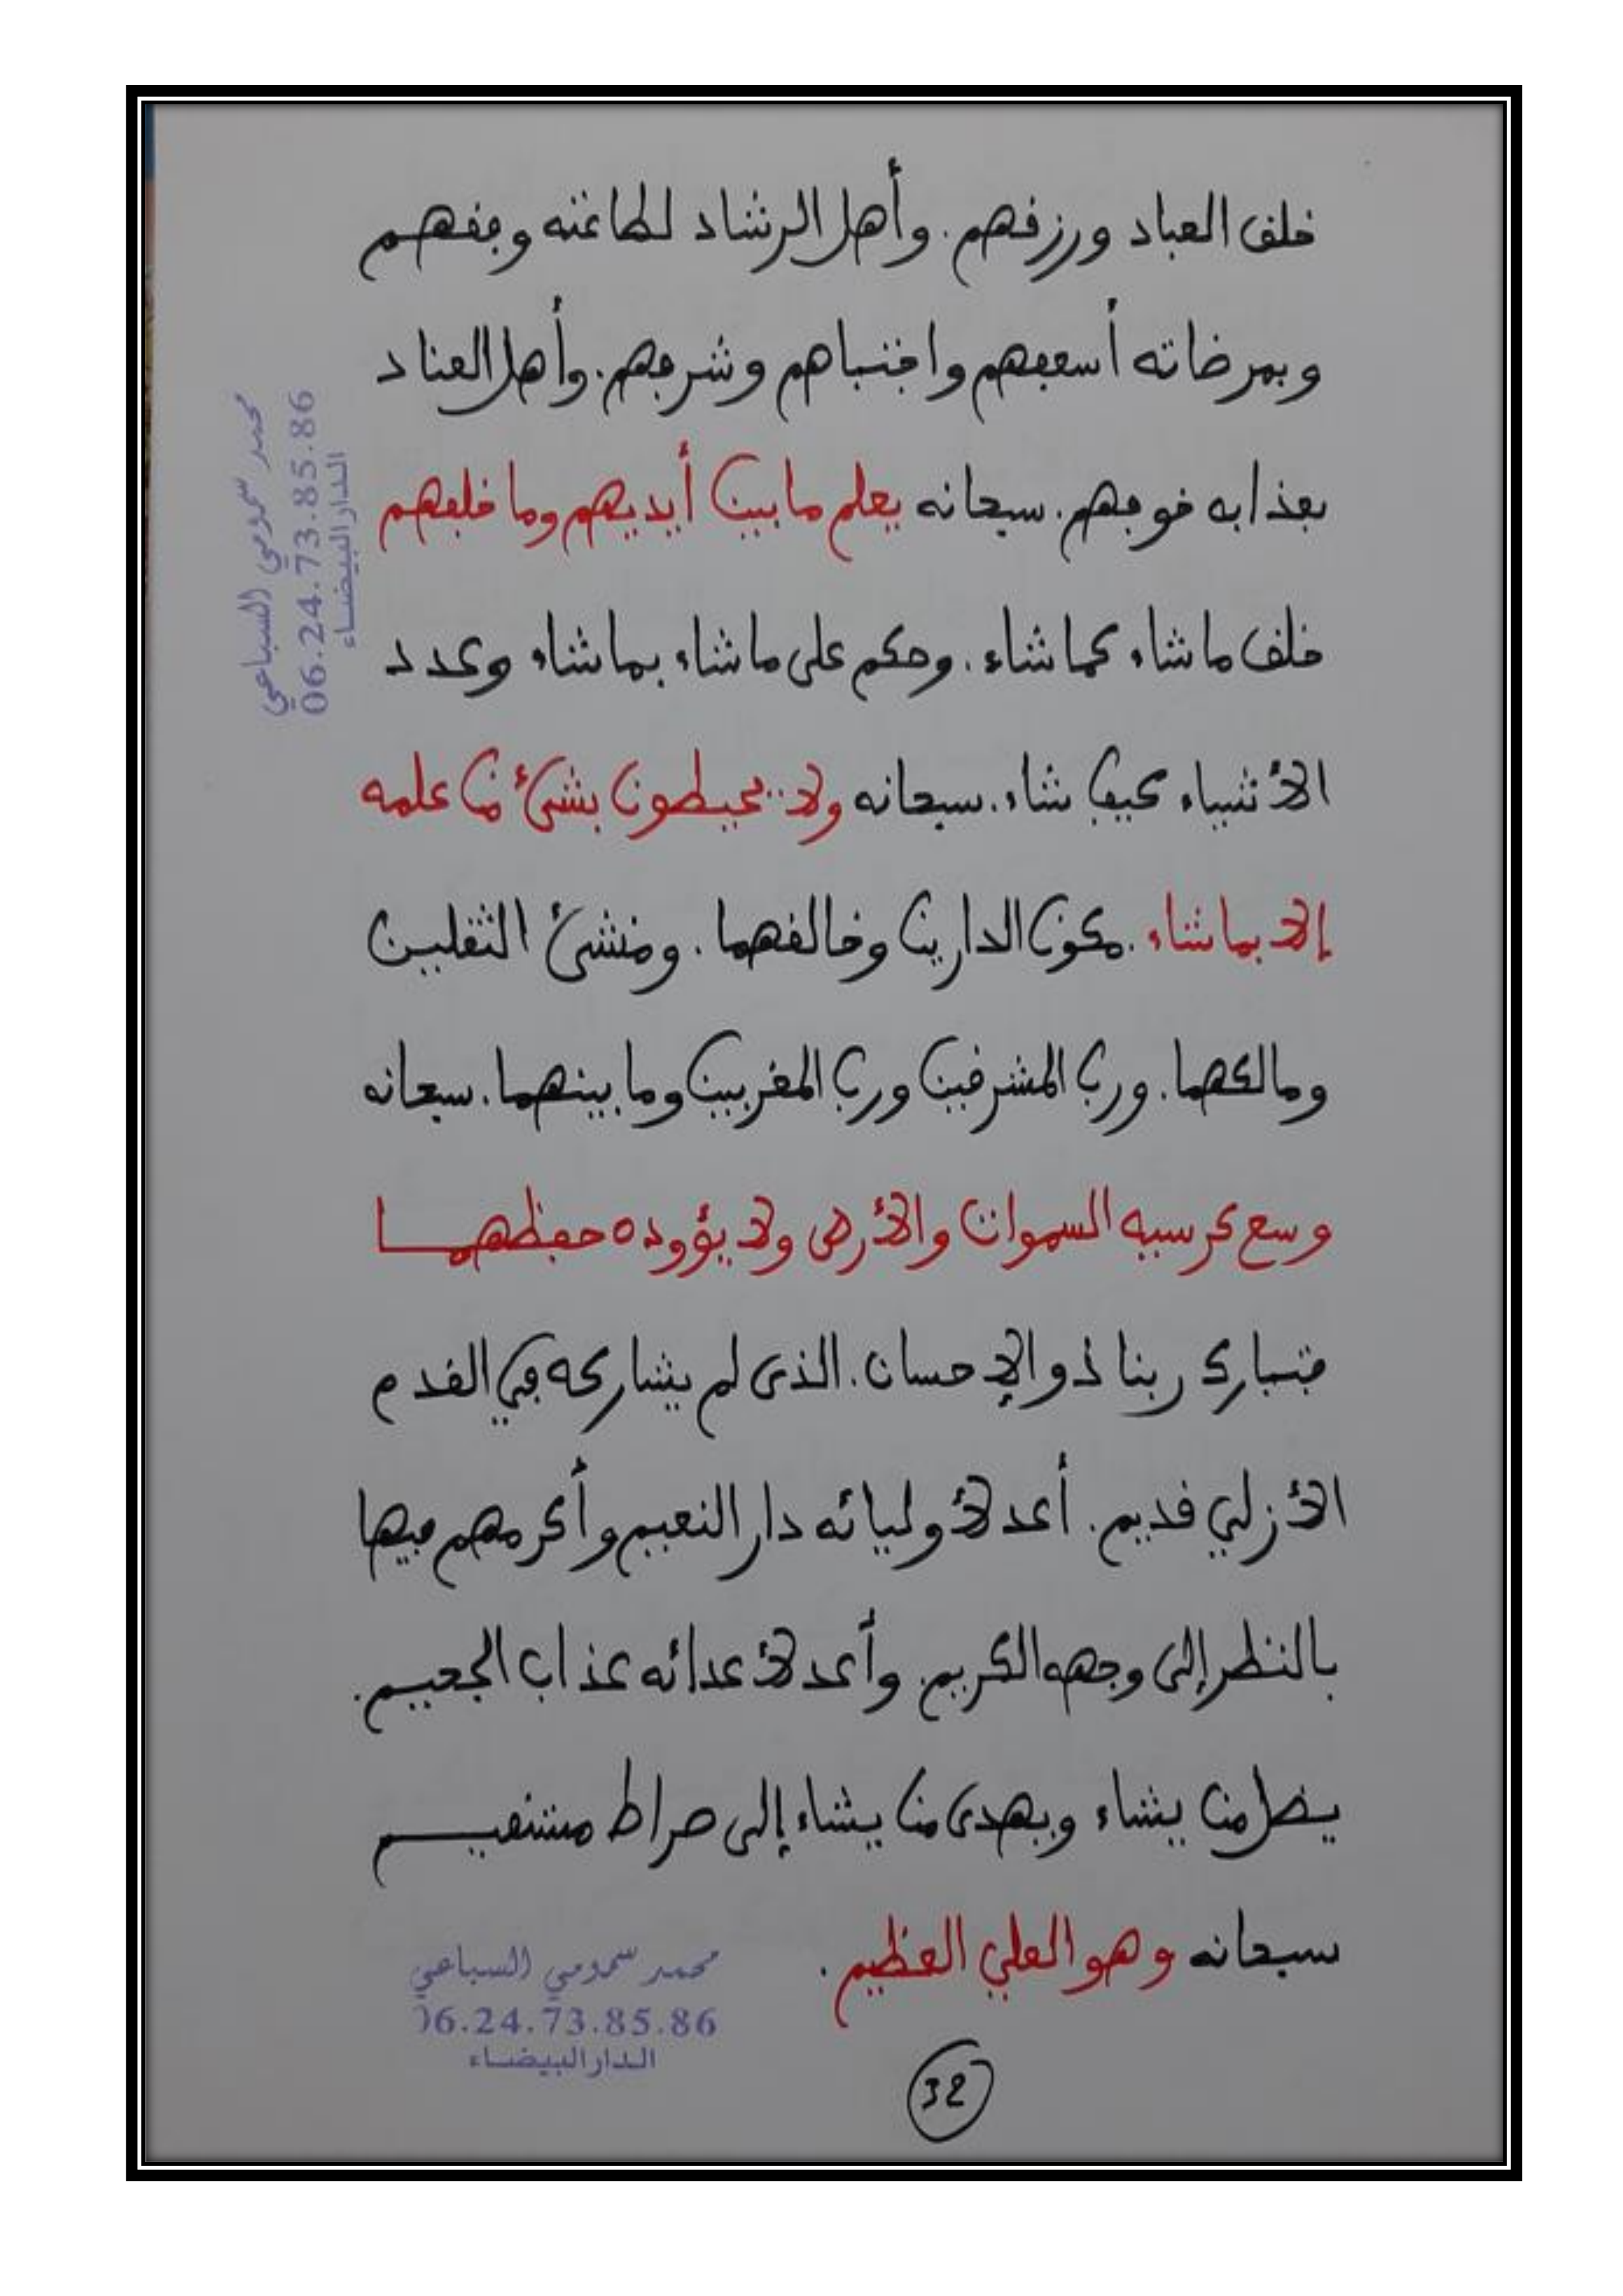 خلق العباد ورزقهم. وأهل الرشاد لطاعته وفقهم
وبمرضاته أسعفهم واجتباهم وشرفهم. وأهل العناد
بعذابه خوفهم. سبحانه يعلم ما بين أيديهم وما خلفهم
خلق ما شاء كما شاء. وحكم على ما شاء بما شاء وعدد
الأشياء كيف شاء. سبحانه ولا يحيطون بشئ من علمه
إلا بما شاء. مكون الدارين وخالقهما. ومنشئ الثقلين
ومالكهما. ورب المشرقين ورب المغربين وما بينهما. سبحانه
وسع كرسيه السموات والأرض ولا يؤوده حفظهما
فتبارك ربنا ذو الإحسان. الذى لم يشاركه في القدم
الأزلي قديم. أعد لأوليائه دار النعيم وأكرمهم فيها
بالنظر إلى وجهه الكريم. وأعد لأعدائه عذاب الجحيم.
يضل من يشاء ويهدى من يشاء إلى صراط مستقيم
سبحانه وهو العلي العظيم.
32
محمد سمومي السباعي
06.24.73.85.86
الدار البيضاء
محمد سمومي السباعي
06.24.73.85.86
الدار البيضاء